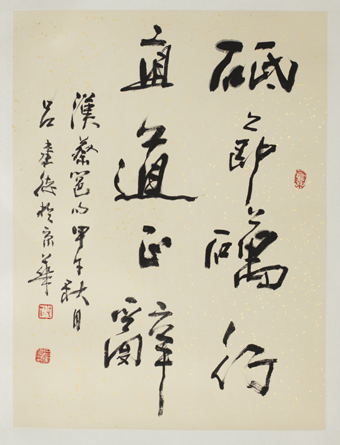 砥節礪行
直道正辭
漢蔡邕句甲午秋月
吕德於京華